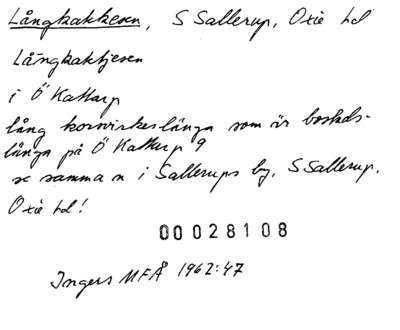 Långkakkesen, S Sallerup, Oxie hd
Långkaktjesen
i Ö Kattarp
lång korsvirkeslänga som är bostads-
länga på Ö Kattarp 9
se samma n i Sallerups by, S Sallerup,
Oxie hd!
00028108
Ingers MFÅ 1962:47